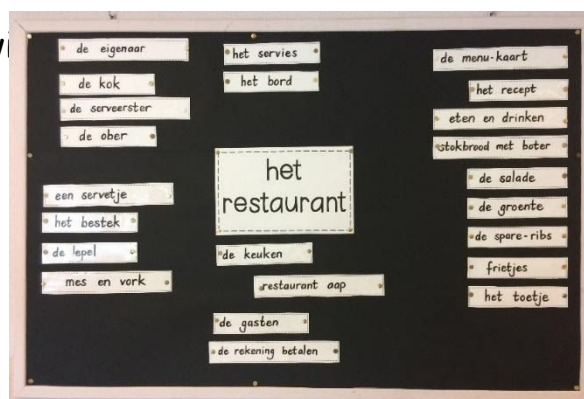 de eigenaar
de kok
de serveerster
de ober
een servetje
het bestek
de lepel
mes en vork
het servies
het bord
het
restaurant
de keuken
restaurant aap
de gasten
de rekening betalen
de menu-kaart
het recept
eten en drinken
stokbrood met boter
de salade
de groente
de spare-ribs
frietjes
het toetje